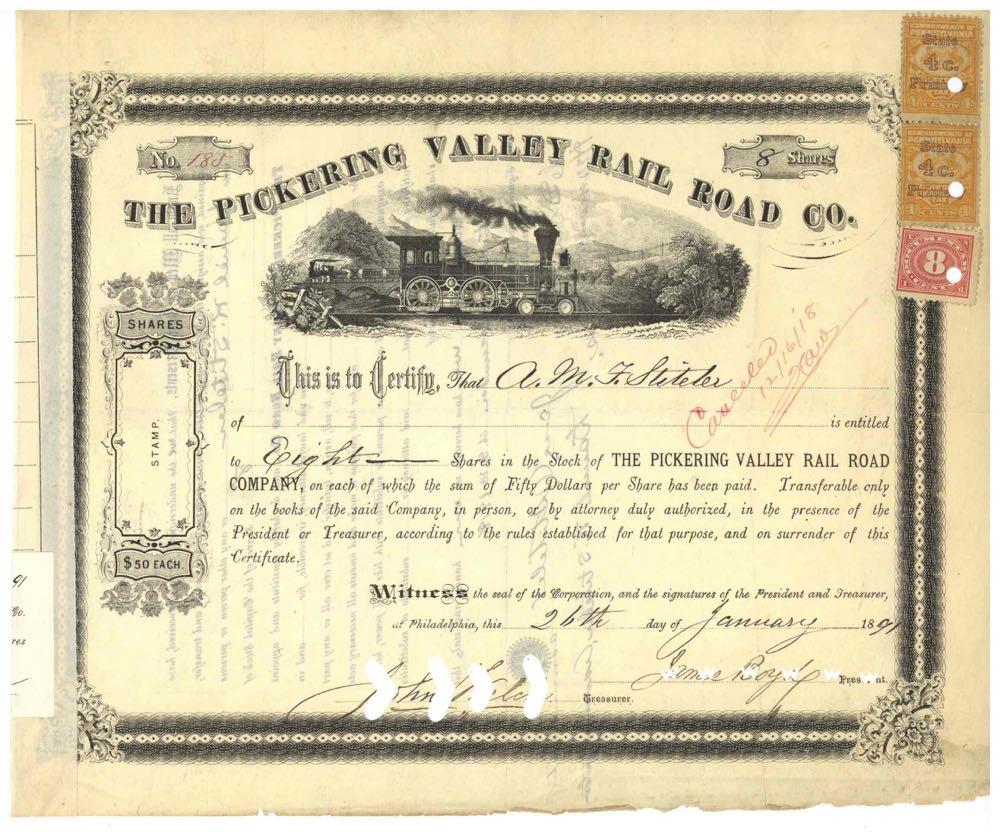 COMMONWEALTH OF
PENNSYLVANIA
State
4 c.
TAX
4 CENTS 4
COMMONWEALTH OF
PENNSYLVANIA
State
4 c.
TAX
4 CENTS 4
8
CENTS
No. 188
8 Shares
THE PICKERING VALLEY RAIL ROAD CO.
SHARES
STAMP.
$50 EACH.
Cancelled
12/16/18
This is to Certify, That A. M. F. Stiteler
of is entitled
to Eight Shares in the Stock of THE PICKERING VALLEY RAIL ROAD
COMPANY, on each of which the sum of Fifty Dollars per Share has been paid. Transferable only
on the books of the said Company, in person, or by attorney duly authorized, in the presence of the
President or Treasurer, according to the rules established for that purpose, and on surrender of this
Certificate.
Witness the seal of the Corporation, and the signatures of the President and Treasurer,
at Philadelphia, this 26th day of January 1891
John Treasurer.
Boyd President.
91
Co.
res